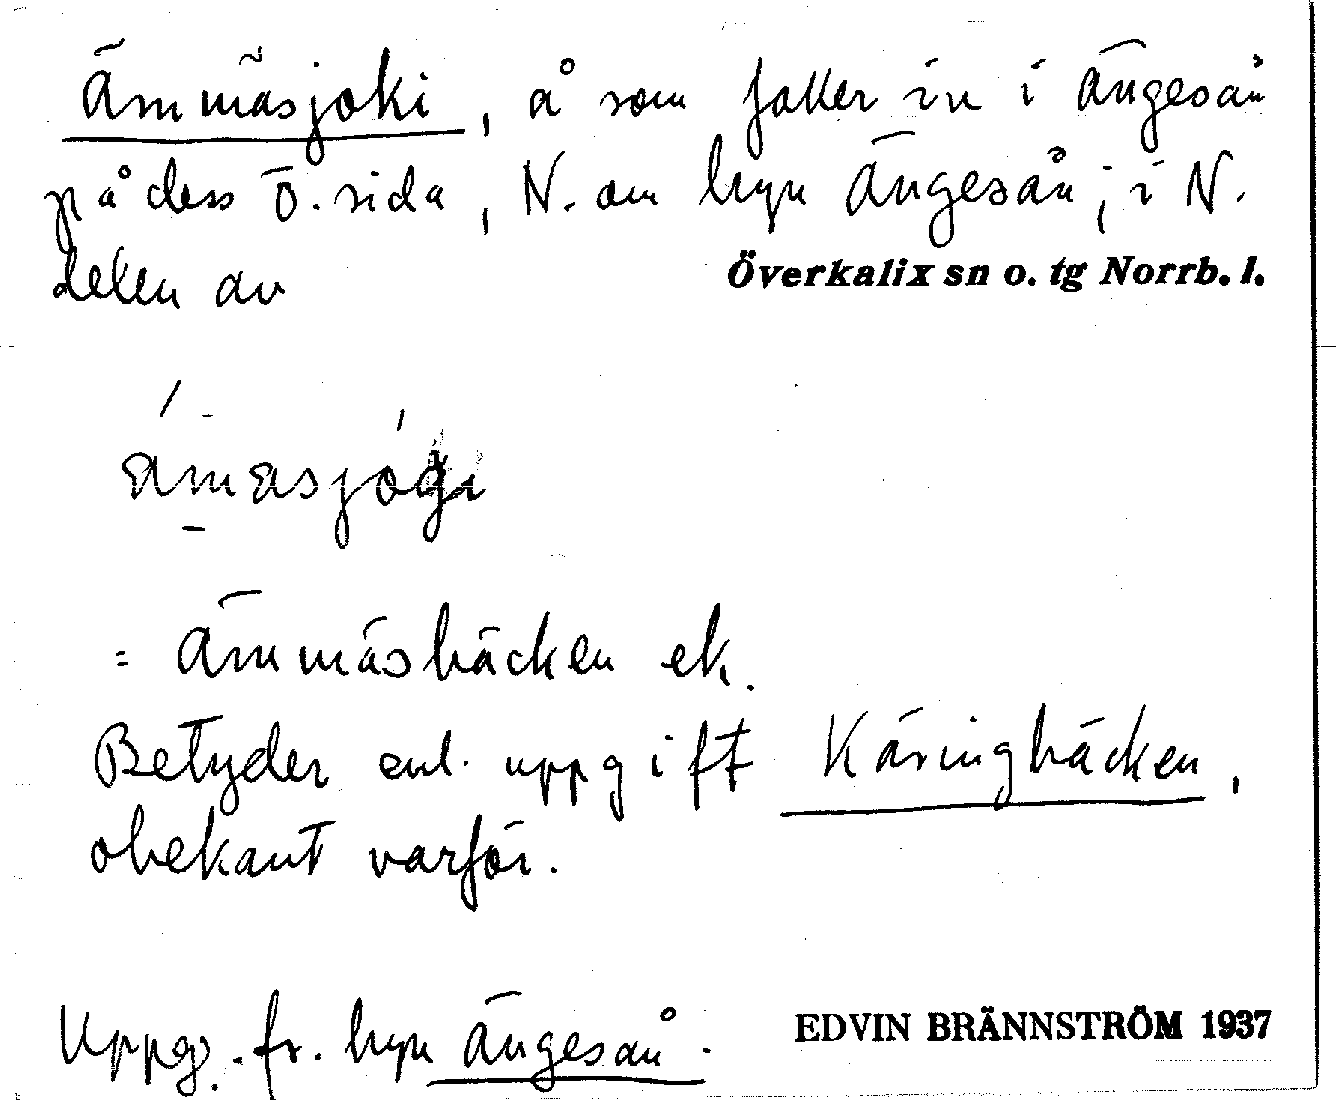 Ämmäsjoki, å som faller in i Ängesån
på dess Ö. sida, N. om byn Ängesån; i N.
delen av Överkalix sn o. tg Norrb. l.
ämäsjógi
= Ämmäsbäcken ek.
Betyder enl. uppgift Käringbäcken,
obekant varför.
Uppg. fr. byn Ängeså. EDVIN BRÄNNSTRÖM 1937